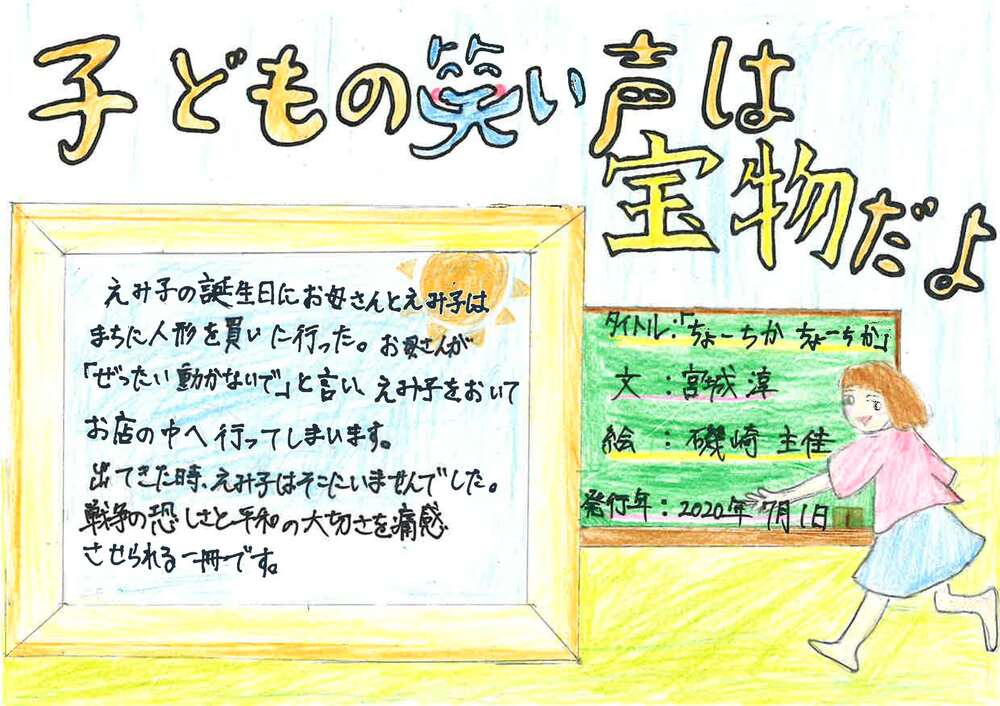 子どもの笑い声は
宝物だよ
えみ子の誕生日にお母さんとえみ子は
まちに人形を買いに行った。お母さんが
「ぜったい動かないで」と言い、えみ子をおいて
お店の中へ行ってしまいます。
出てきた時、えみ子はそこにいませんでした。
戦争の恐しさと平和の大切さを痛感
させられる一冊です。
タイトル:「ちょーちか ちょーちか」
文:宮城 淳
絵:磯崎 主佳
発行年:2020年7月1日